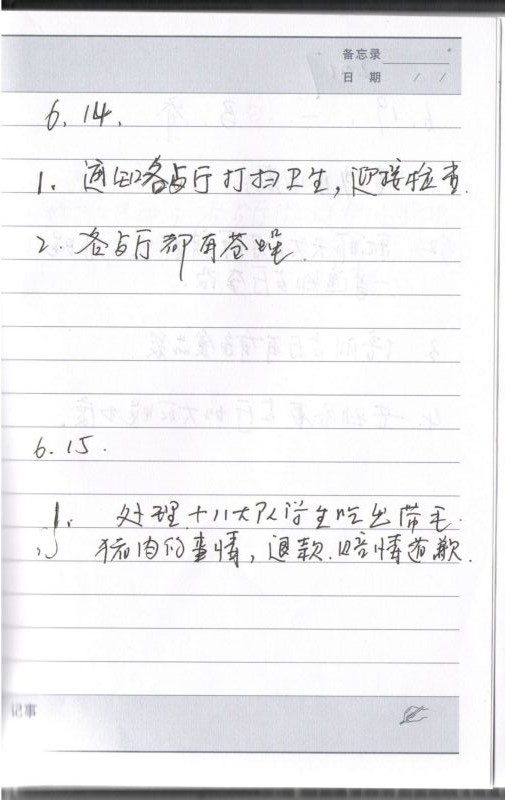 备忘录
日 期 / /
6.14.
1. 通知各占厅打扫卫生，迎接检查.
2. 各占厅都有苍蝇.
6.15.
1. 处理十八大队学生吃出带毛
猪肉的事情，退款.赔情道歉.